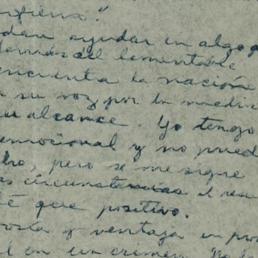 dan ayudar en algo q
demás del lamentable
encuentra la nación
su voz por la nuestra
su alcance. Yo tengo
emocional y no pued
pero se me sigue
as circunstancias el resu
é que positivo.
y ventaja en pro
en un crimen.